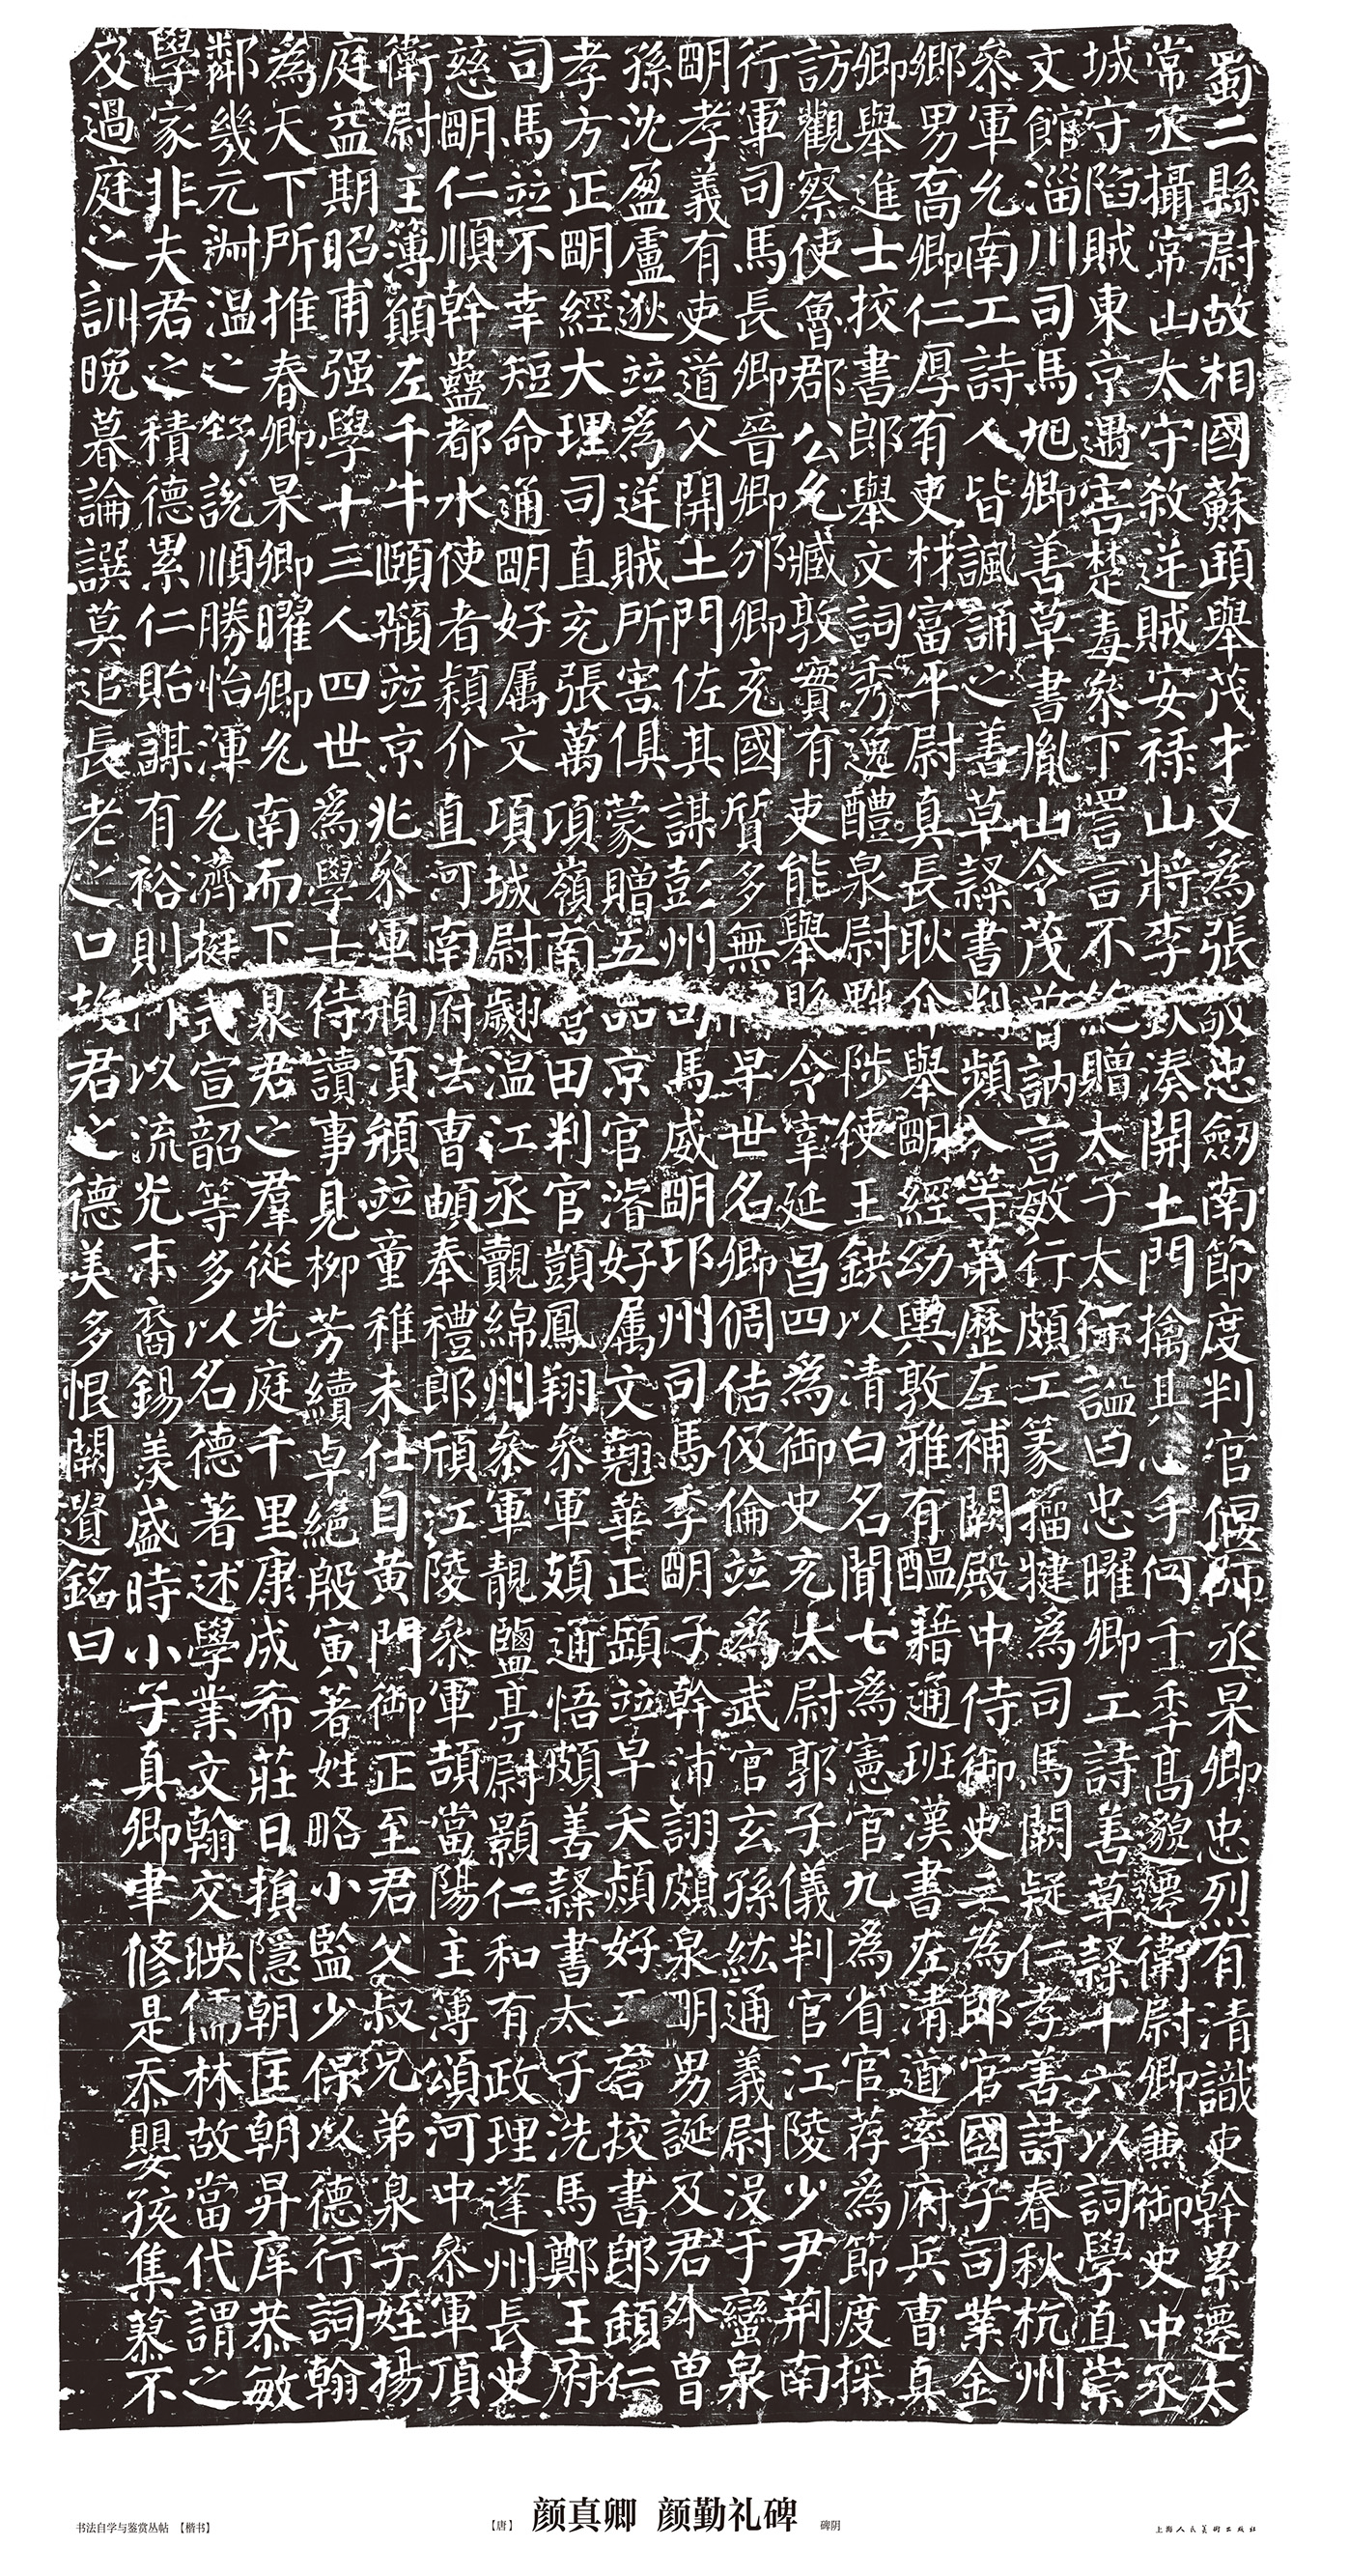 蜀二縣尉故相國蘇頲舉茂才又爲張敬忠劒南節度判官偃師丞杲卿忠烈有清識吏幹累遷太
常丞攝常山太守殺逆賊安祿山將李欽湊開土門擒其心手何千年高邈遷衛尉卿兼御史中丞
城守陷賊東京遇害楚毒參下詈言不絕贈太子太保謚曰忠曜卿工詩善草隸十六以詞學直崇
文館淄川司馬旭卿善草書胤山令茂曾訥言敏行頗工篆籀犍爲司馬闕疑仁孝善詩春秋杭州
參軍允南工詩人皆諷誦之善草隸書判頻入等第歷左補闕殿中侍御史三爲郎官國子司業金
鄉男喬卿仁厚有吏材富平尉真長耿介舉明經幼輿敦雅有醞藉通班漢書左清道率府兵曹真
卿舉進士挍書郎舉文詞秀逸醴泉尉黜陟使王鉷以清白名聞七爲憲官九爲省官荐爲節度採
訪觀察使魯郡公允臧敦實有吏能舉縣令宰延昌四爲御史充太尉郭子儀判官江陵少尹荊南
行軍司馬長卿晉卿邠卿充國質多無祿早世名卿倜佶伋倫竝爲武官玄孫紘通義尉没于蠻泉
明孝義有吏道父開土門佐其謀彭州司馬威明邛州司馬季明子幹沛詡頗泉明男誕及君外曾
孫沈盈盧逖竝爲逆賊所害俱蒙贈五品京官濬好属文翹華正頣竝早夭熲好五言挍書郎頲仁
孝方正明經大理司直充張萬頃嶺南營田判官顗鳳翔參軍頍通悟頗善隸書太子洗馬鄭王府
司馬竝不幸短命通明好属文項城尉翽温江丞覿綿州參軍靚鹽亭尉顥仁和有政理蓬州長史
慈明仁順幹蠱都水使者穎介直河南府法曹頔奉禮郎頎江陵參軍頡當陽主簿頌河中參軍頂
衛尉主簿願左千牛頤頵竝京兆參軍頯須頱竝童稚未仕自黃門御正至君父叔兄弟泉子姪揚
庭益期昭甫强學十三人四世爲學士侍讀事見柳芳續卓絕殷寅著姓略小監少保以德行詞翰
爲天下所推春卿杲卿曜卿允南而下泉君之羣從光庭千里康成希莊日損隱朝匡朝昇庠恭敏
鄰幾元淵温之舒說順勝怡渾允濟挺式宣韶等多以名德著述學業文翰交映儒林故當代謂之
學家非夫君之積德累仁貽謀有裕則何以流光末裔錫羡盛時小子真卿聿修是忝嬰孩集蓼不
及過庭之訓晚暮論譔莫追長老之口故君之德美多恨闕遺銘曰
书法自学与鉴赏丛帖 【楷书】
【唐】 颜真卿 颜勤礼碑 碑阴
上海人民美術出版社